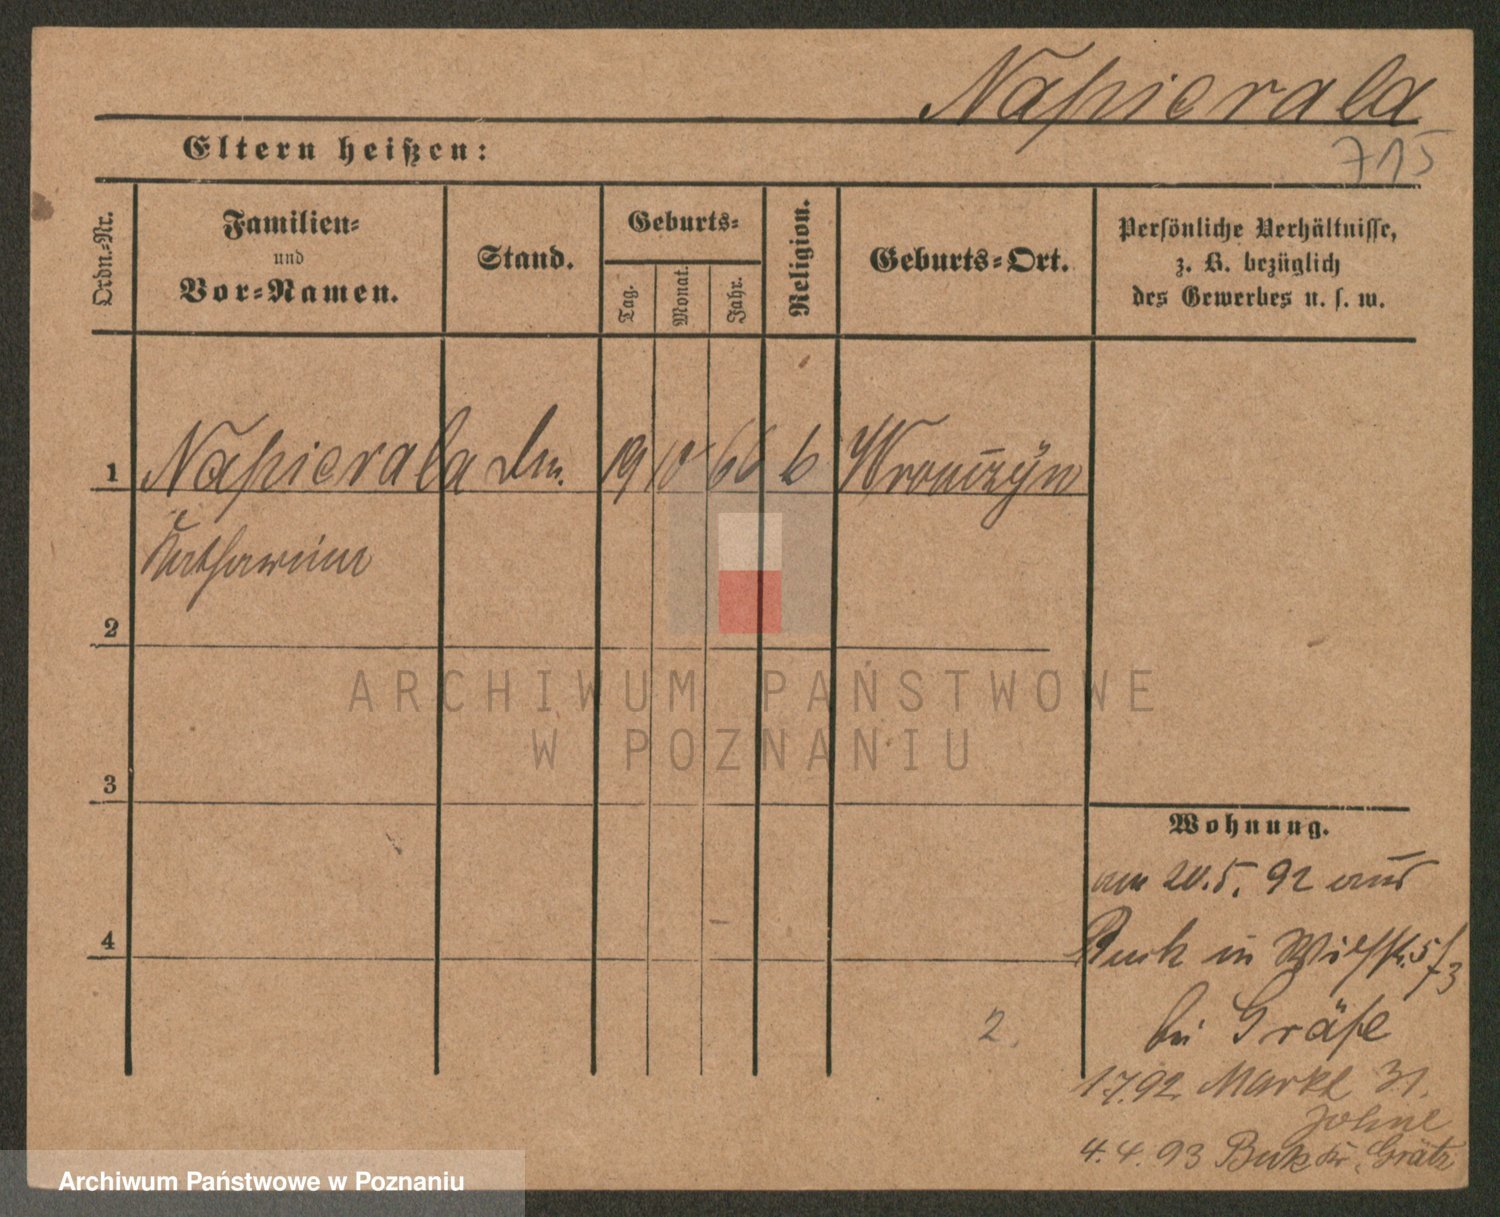 Napierala
715
Eltern heißen:
Ordn.-Nr.
Familien-
und
Vor-Namen.
Stand.
Geburts-
Tag.
Monat.
Jahr.
Religion.
Geburts-Ort.
Persönliche Verhältnisse,
z. B. bezüglich
des Gewerbes u. s. w.
1 Napierala 19 10 66 Wronczyn
Katharina
2
3
4
Wohnung.
am 20.5.92 aus
Buk in 5/3
bei Gräfe
1.7.92. Markt 31.
Johne
4.4.93 Buk Kr. Grätz
2
ARCHIWUM PAŃSTWOWE
W POZNANIU
Archiwum Państwowe w Poznaniu